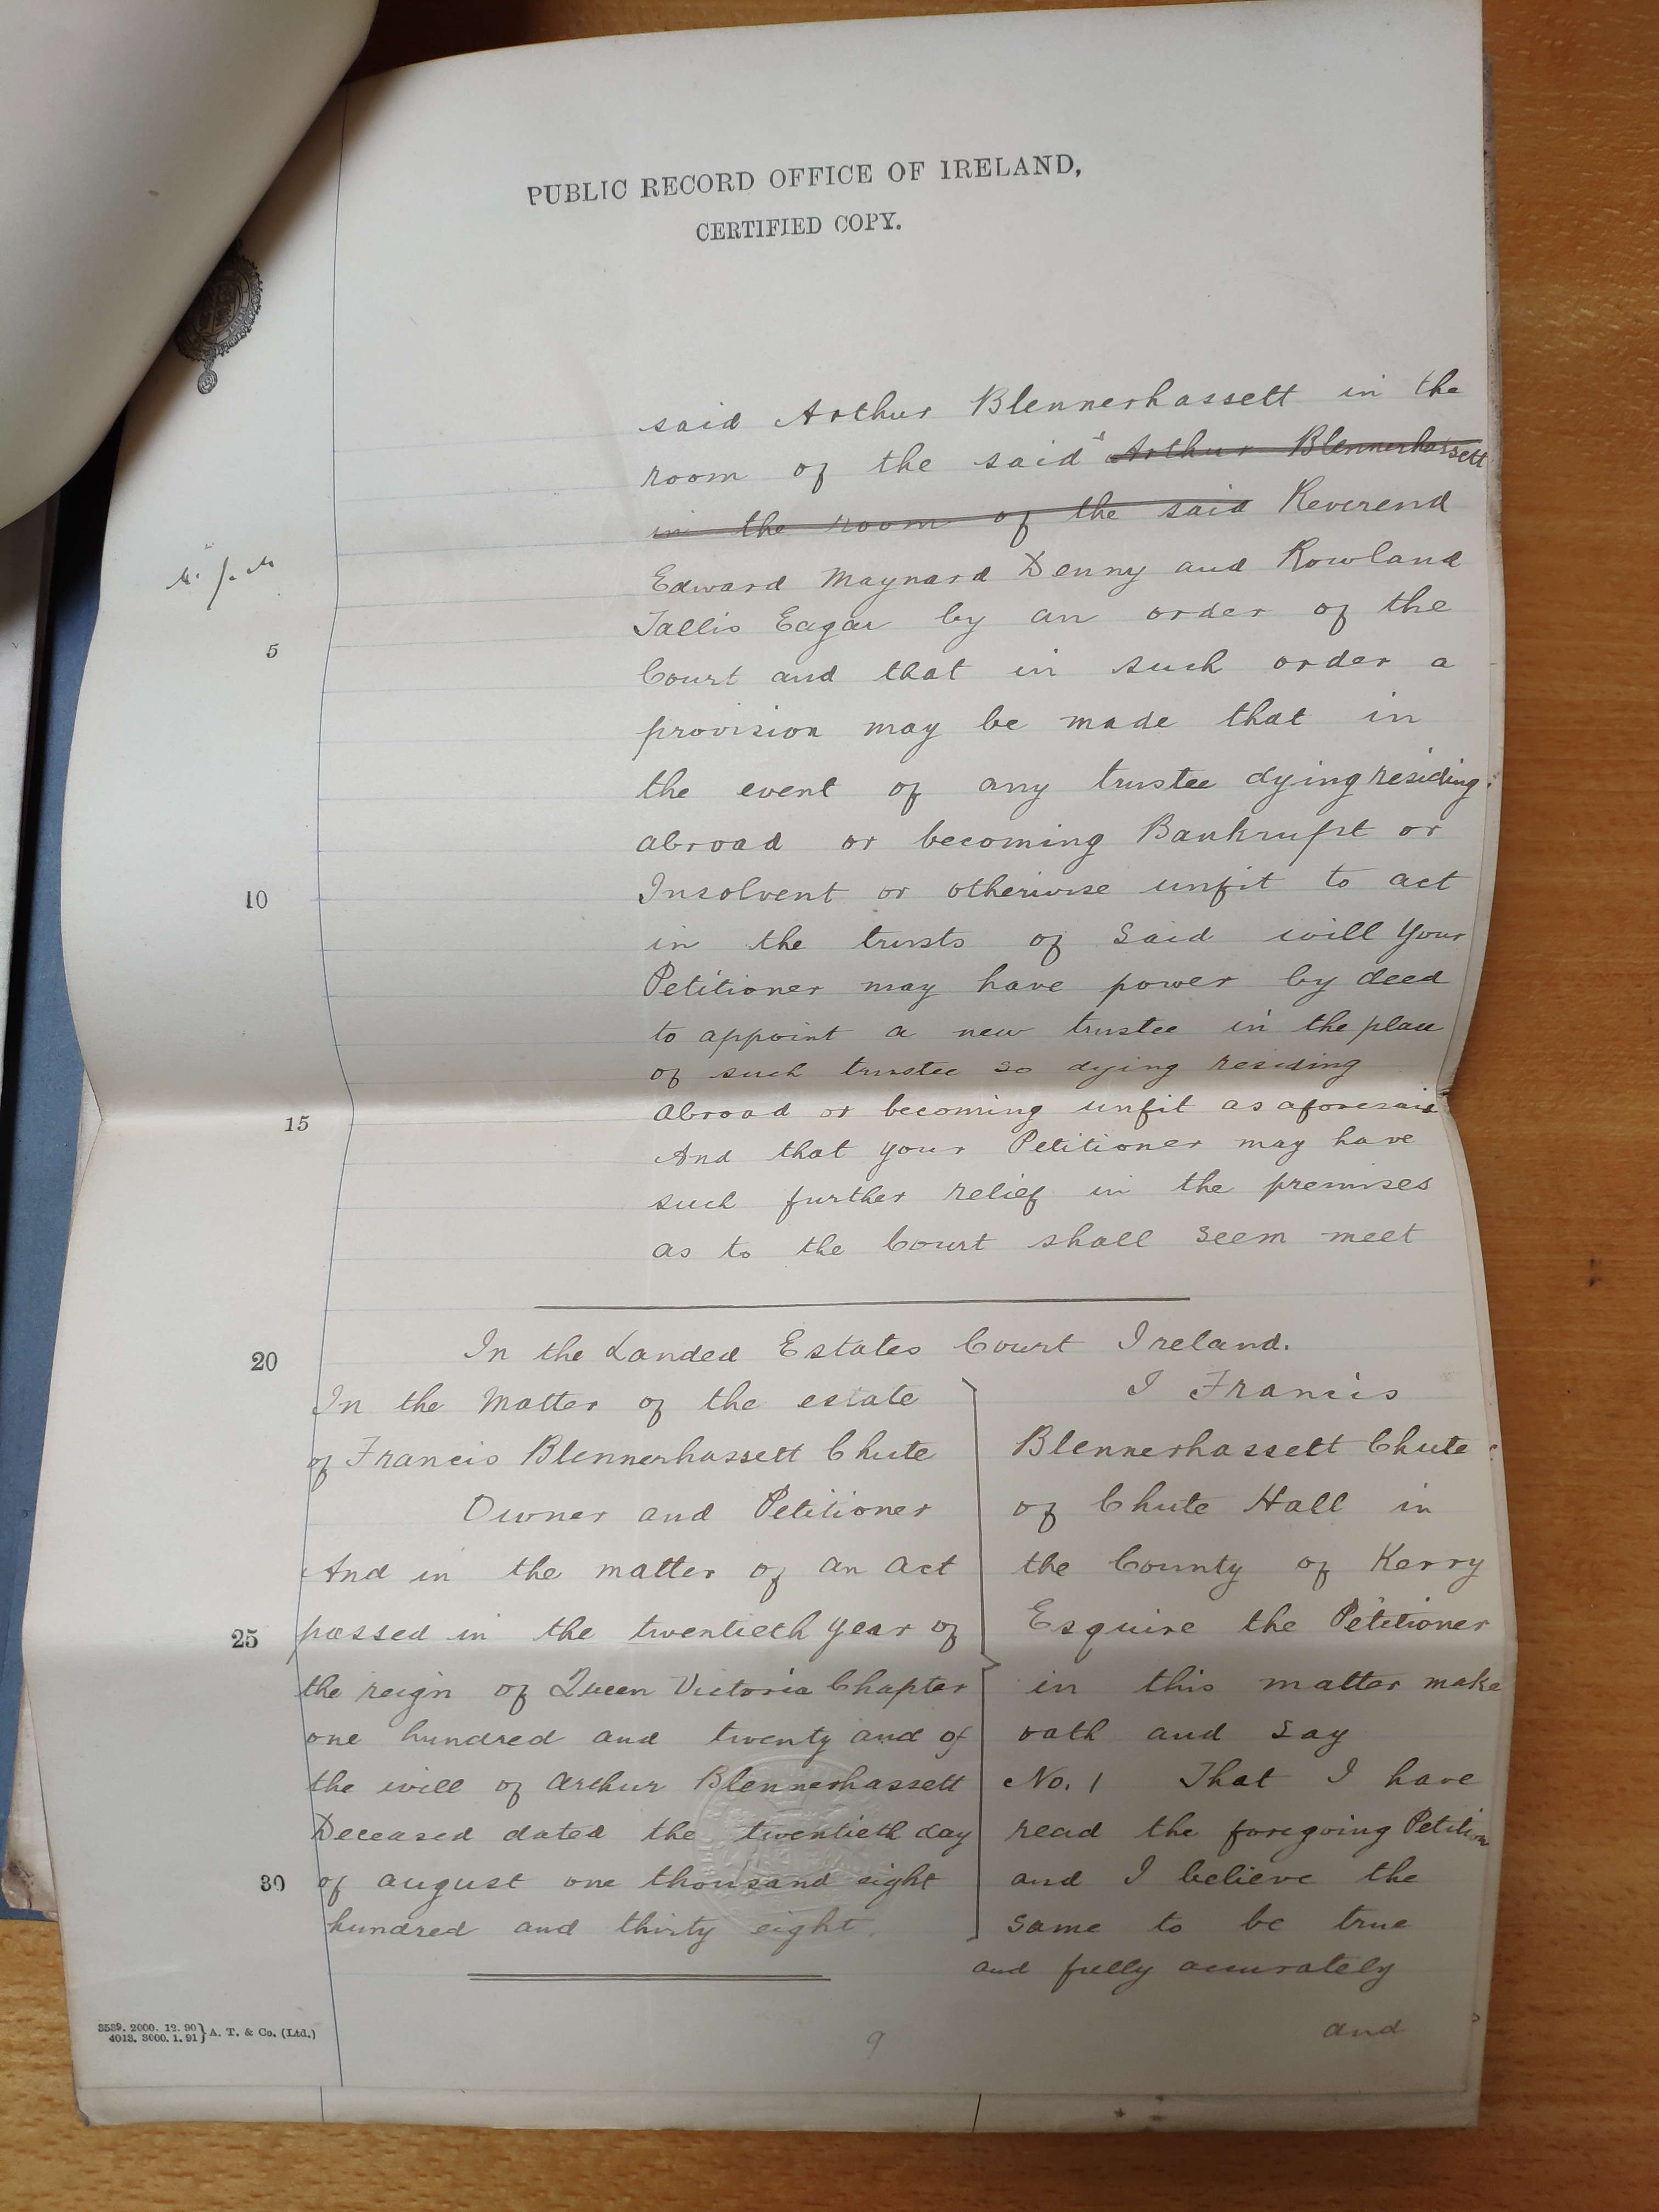 PUBLIC RECORD OFFICE OF IRELAND,
CERTIFIED COPY.
said Arthur Blennerhassett in the
room of the said Arthur Blennerhassett
in the room of the said Reverend
Edward Maynard Denny and Rowland
Tallis Eagar by an order of the
5
Court and that in such order a
provision may be made that in
the event of any trustee dying residing
abroad or becoming Bankrupt or
10
Insolvent or otherwise unfit to act
in the trusts of said will your
Petitioner may have power by deed
to appoint a new trustee in the place
of such trustee so dying residing
15
abroad or becoming unfit as aforesaid
And that your Petitioner may have
such further relief in the premises
as to the Court shall seem meet
20
In the Landed Estates Court Ireland.
In the Matter of the estate
of Francis Blennerhassett Chute
Owner and Petitioner
And in the matter of an act
25
passed in the twentieth year of
the reign of Queen Victoria Chapter
one hundred and twenty and of
the will of Arthur Blennerhassett
Deceased dated the twentieth day
30
of august one thousand eight
hundred and thirty eight.
I Francis
Blennerhassett Chute
of Chute Hall in
the County of Kerry
Esquire the Petitioner
in this matter make
oath and say
No. 1 That I have
read the foregoing Petition
and I believe the
same to be true
and fully accurately
and
3539. 2000. 12. 90
4013. 3000. 1. 91} A. T. & Co. (Ltd.)
9